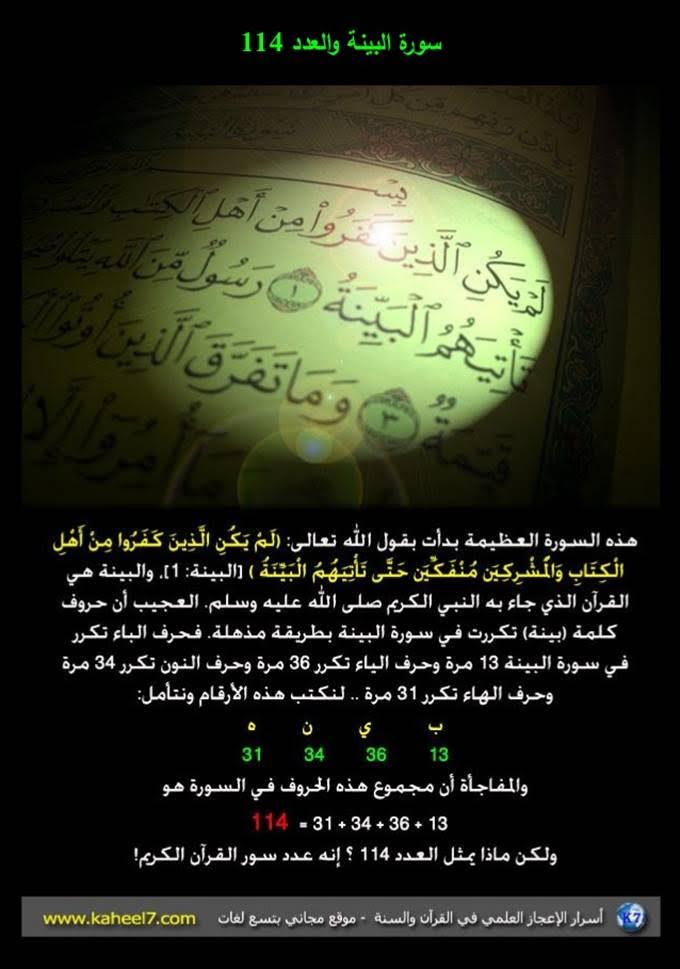 سورة البينة والعدد 114
بِسْـ
لَمْ يَكُنِ ٱلَّذِينَ كَفَرُوا۟ مِنْ أَهْلِ ٱلْكِتَٰبِ
تَأْتِيَهُمُ ٱلْبَيِّنَةُ ١ رَسُولٌ مِّنَ ٱللَّهِ يَتْلُوا۟
٣ وَمَا تَفَرَّقَ ٱلَّذِينَ أُوتُوا۟
أُمِرُوٓا۟ إِلَّا
هذه السورة العظيمة بدأت بقول الله تعالى: (لَمْ يَكُنِ الَّذِينَ كَفَرُوا مِنْ أَهْلِ
الْكِتَابِ وَالْمُشْرِكِينَ مُنْفَكِّينَ حَتَّى تَأْتِيَهُمُ الْبَيِّنَةُ ) [البينة: 1]. والبينة هي
القرآن الذي جاء به النبي الكريم صلى الله عليه وسلم. العجيب أن حروف
كلمة (بينة) تكررت في سورة البينة بطريقة مذهلة. فحرف الباء تكرر
في سورة البينة 13 مرة وحرف الياء تكرر 36 مرة وحرف النون تكرر 34 مرة
وحرف الهاء تكرر 31 مرة .. لنكتب هذه الأرقام ونتأمل:
ب ي ن ه
13 36 34 31
والمفاجأة أن مجموع هذه الحروف في السورة هو
13 + 36 + 34 + 31 = 114
ولكن ماذا يمثل العدد 114 ؟ إنه عدد سور القرآن الكريم!
K7 أسرار الإعجاز العلمي في القرآن والسنة - موقع مجاني بتسع لغات www.kaheel7.com